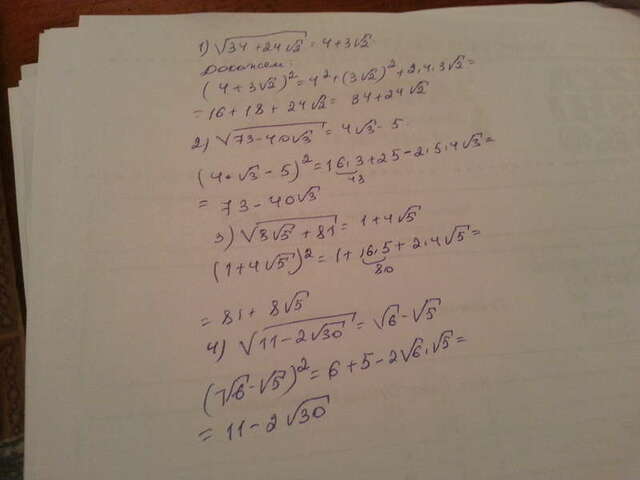 1) √(34+24√2) = 4+3√2
Докажем:
(4+3√2)² = 4²+(3√2)²+2·4·3√2 =
= 16+18+24√2 = 34+24√2
2) √(73-40√3) = 4√3-5
(4·√3-5)² = 16·3+25-2·5·4√3 =
43
= 73-40√3
3) √(8√5+81) = 1+4√5
(1+4√5)² = 1+16·5+2·4√5 =
80
= 81+8√5
4) √(11-2√30) = √6-√5
(√6-√5)² = 6+5-2√6·√5 =
= 11-2√30